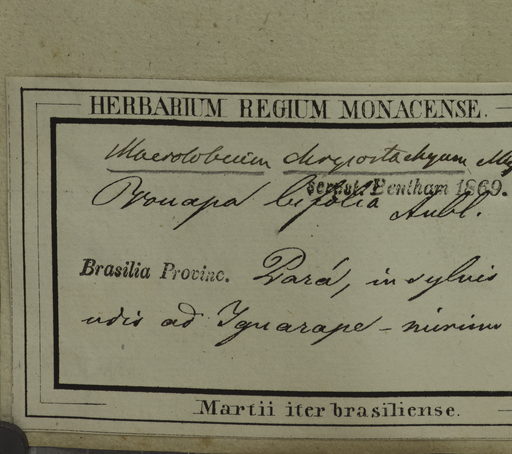 HERBARIUM REGIUM MONACENSE.
Macrolobium chrysostachyum Miq
scripsit. Bentham 1869.
Vouapa bifolia Aubl.
Brasilia Provinc. Pará, in sylvis
udis ad Iguarape-mirim
Martii iter brasiliense.